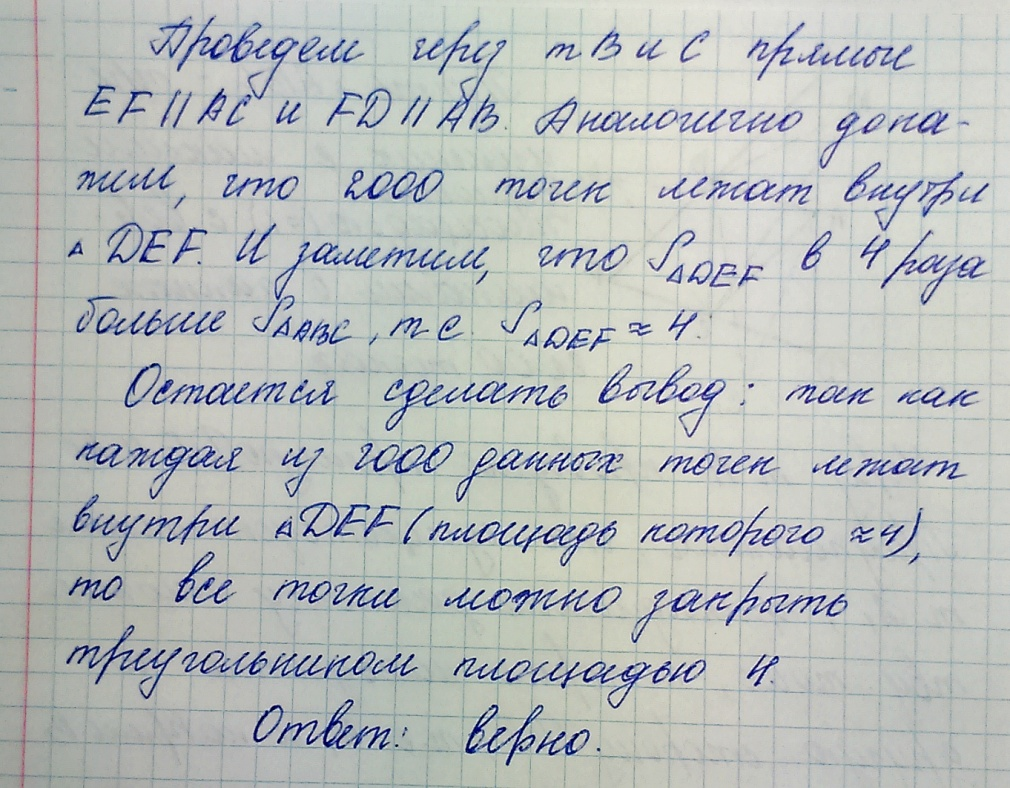 Проведем через т B и C прямые
EF || AC и FD || AB. Аналогично дока-
жем, что 2000 точек лежат внутри
△ DEF. И заметим, что S△DEF в 4 раза
больше S△ABC, т е. S△DEF ≈ 4.
Остается сделать вывод: так как
каждая из 2000 данных точек лежат
внутри △DEF (площадь которого ≈ 4),
то все точки можно закрыть
треугольником площадью 4.
Ответ: верно.